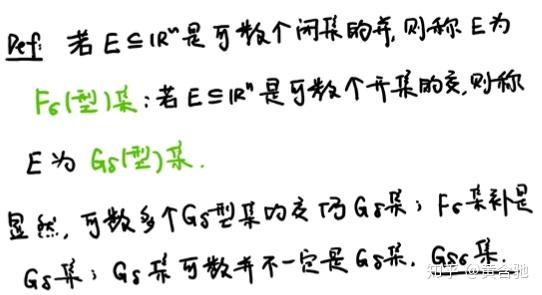 Def: 若 E⊆ℝⁿ是可数个闭集的并,则称 E为
Fσ(型)集;若 E⊆ℝⁿ是可数个开集的交,则称
E为 Gδ(型)集.
显然,可数多个Gδ型集的交为Gδ集;Fσ集补是
Gδ集;Gδ集可数并不一定是Gδ集. Gδσ集.
知乎 @黄合驰